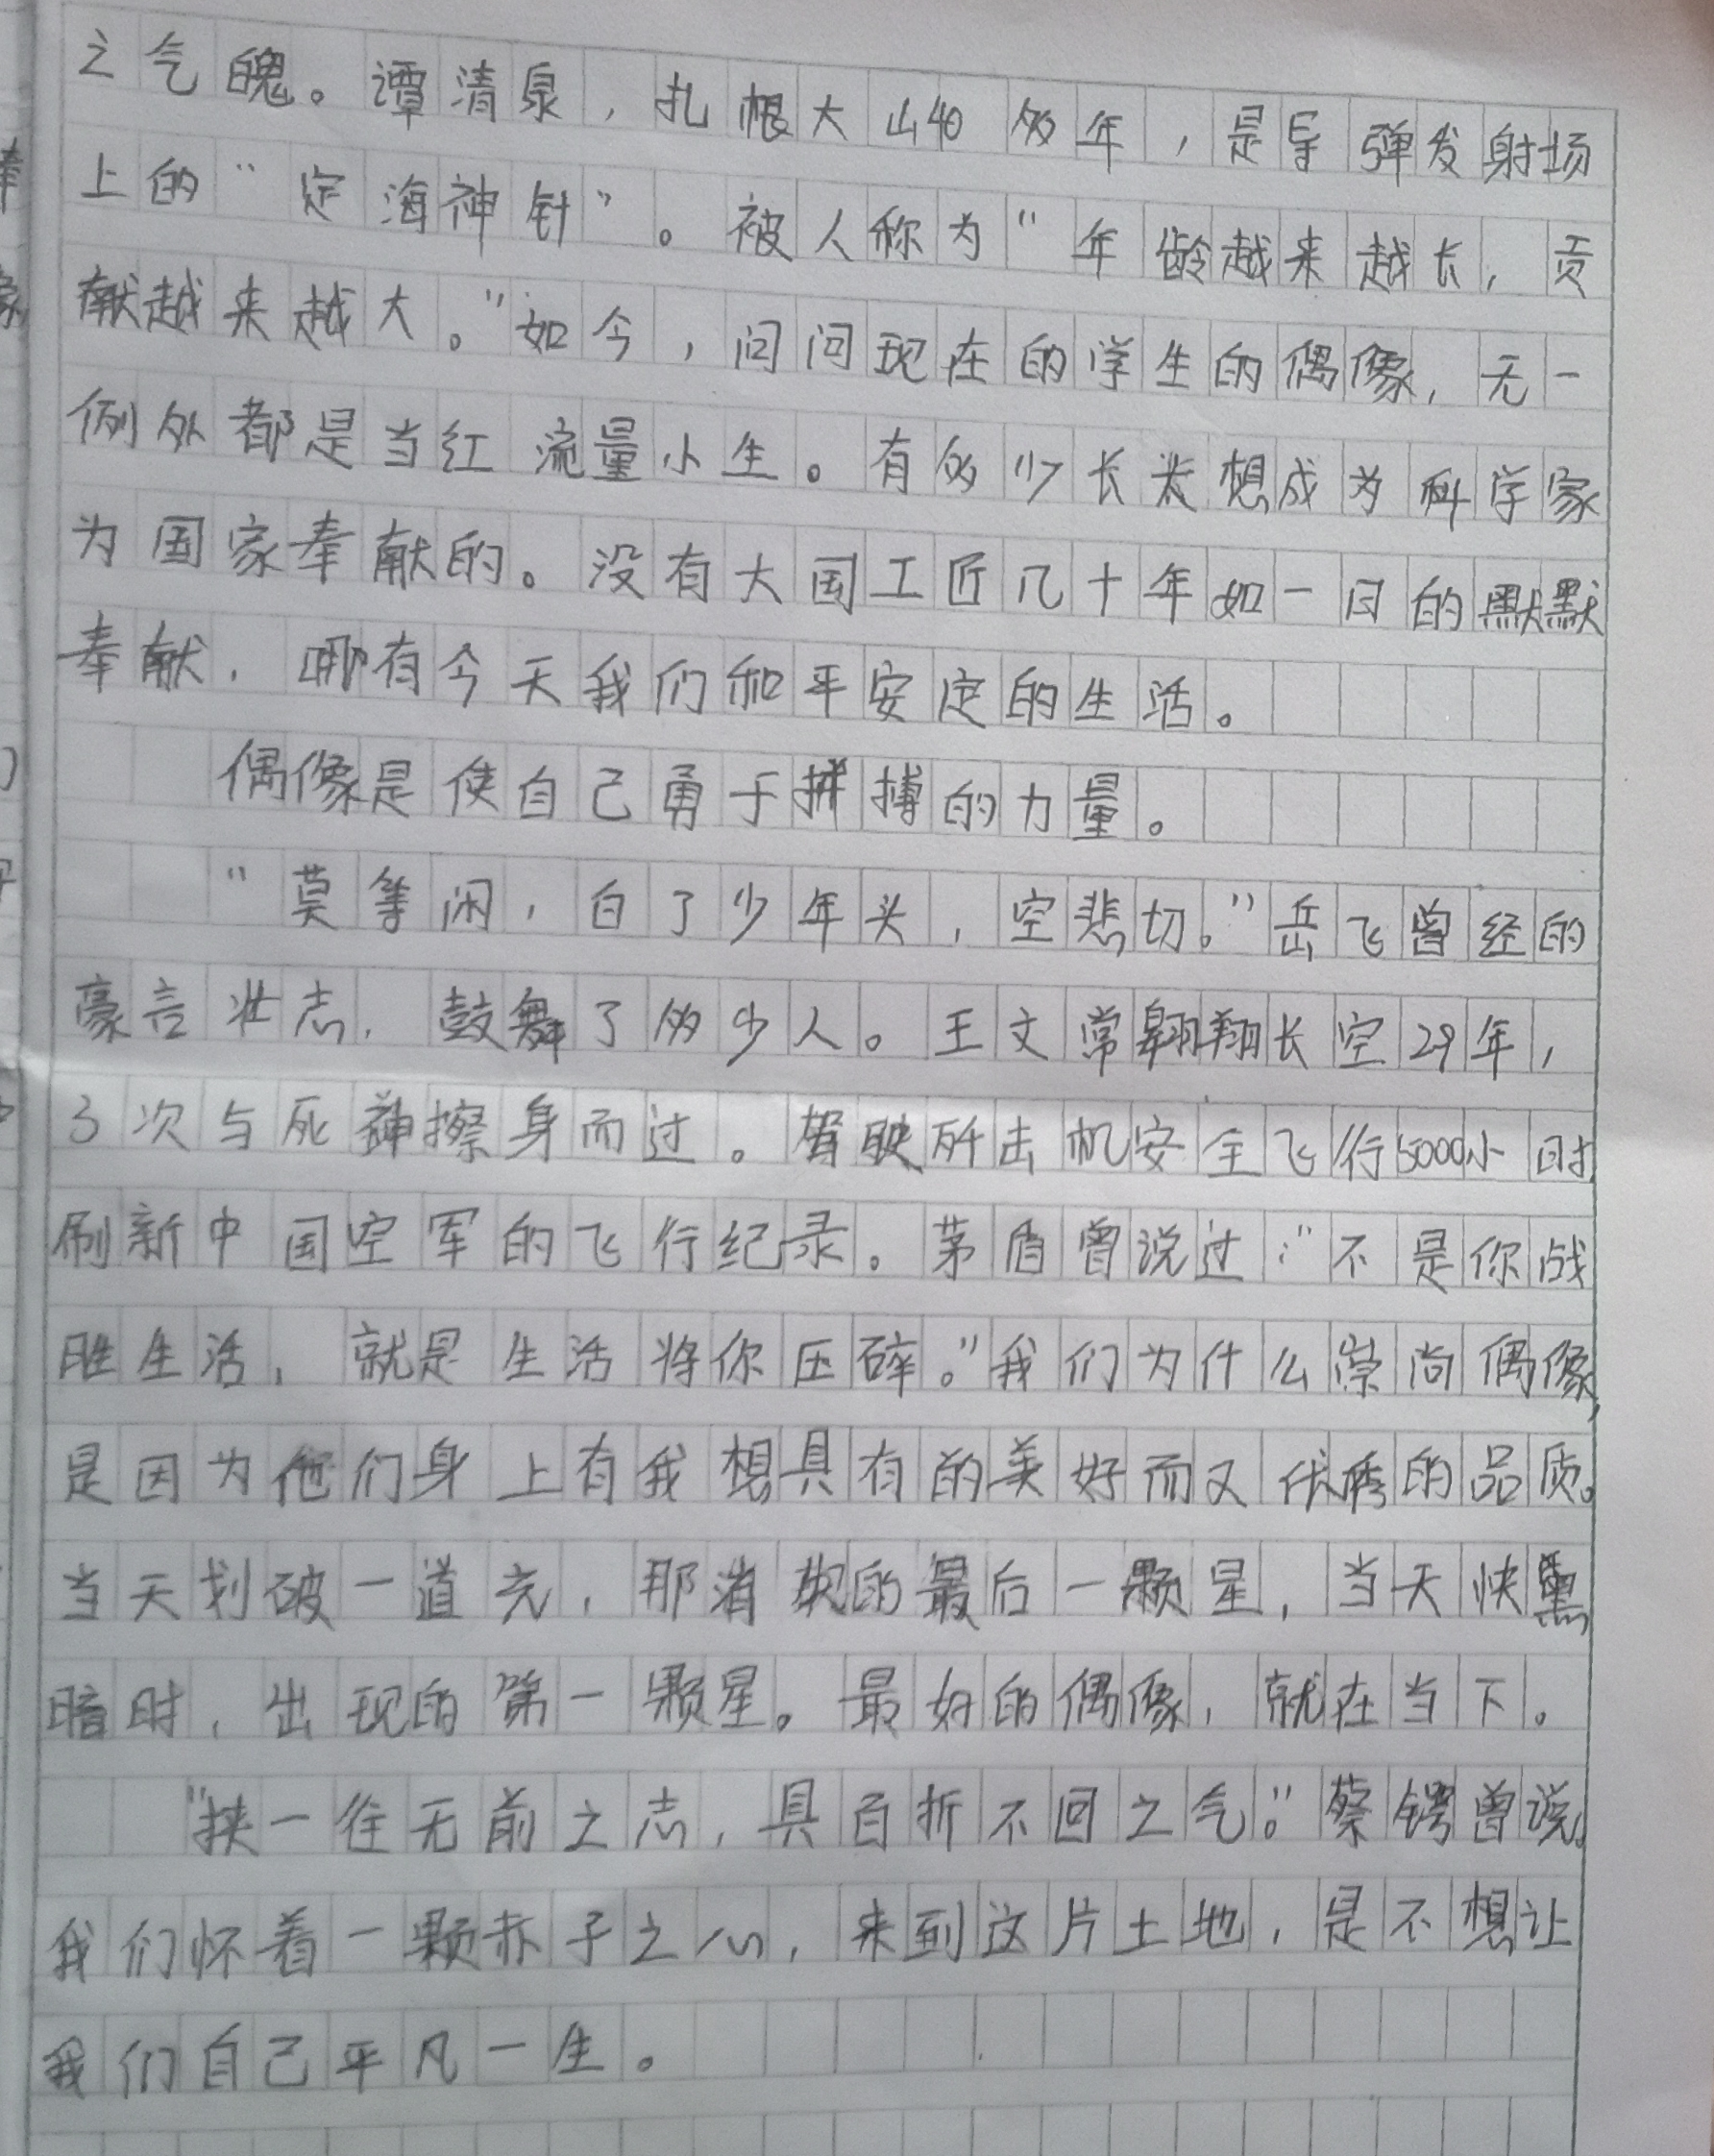 之气魄。谭清泉，扎根大山40多年，是导弹发射场
上的“定海神针”。被人称为“年龄越来越长，贡
献越来越大。”如今，问问现在的学生的偶像，无一
例外都是当红流量小生。有多少长大想成为科学家
为国家奉献的。没有大国工匠几十年如一日的默默
奉献，哪有今天我们和平安定的生活。
偶像是使自己勇于拼搏的力量。
“莫等闲，白了少年头，空悲切。”岳飞曾经的
豪言壮志，鼓舞了多少人。王文常翱翔长空29年，
3次与死神擦身而过。驾驶歼击机安全飞行5000小时，
刷新中国空军的飞行纪录。茅盾曾说过：“不是你战
胜生活，就是生活将你压碎。”我们为什么崇尚偶像，
是因为他们身上有我想具有的美好而又优秀的品质。
当天划破一道光，那消失的最后一颗星，当天快黑
暗时，出现的第一颗星。最好的偶像，就在当下。
“挟一往无前之志，具百折不回之气。”蔡锷曾说。
我们怀着一颗赤子之心，来到这片土地，是不想让
我们自己平凡一生。